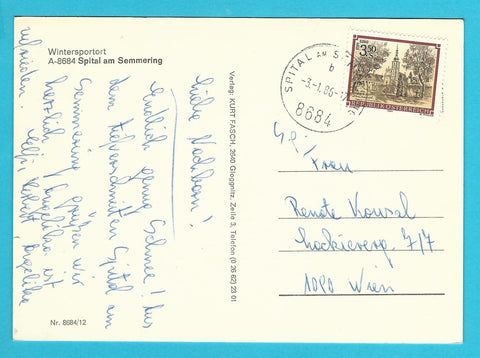 Wintersportort
A-8684 Spital am Semmering
Liebe Nachbarn!
Endlich genug Schnee! Aus
dem tiefverschneiten Spital am
Semmering grüßen wir
herzlich
Angelika ist
zufrieden.
Elfi, Herbert, Angelika
Nr. 8684/12
Verlag: KURT FASCH, 2640 Gloggnitz, Zeile 3, Telefon (0 26-62) 23 01
SPITAL AM S
b
-3.-1.86-1
8684
3.50
REPUBLIK ÖSTERREICH
Frau
Renate
7/7
1090 Wien